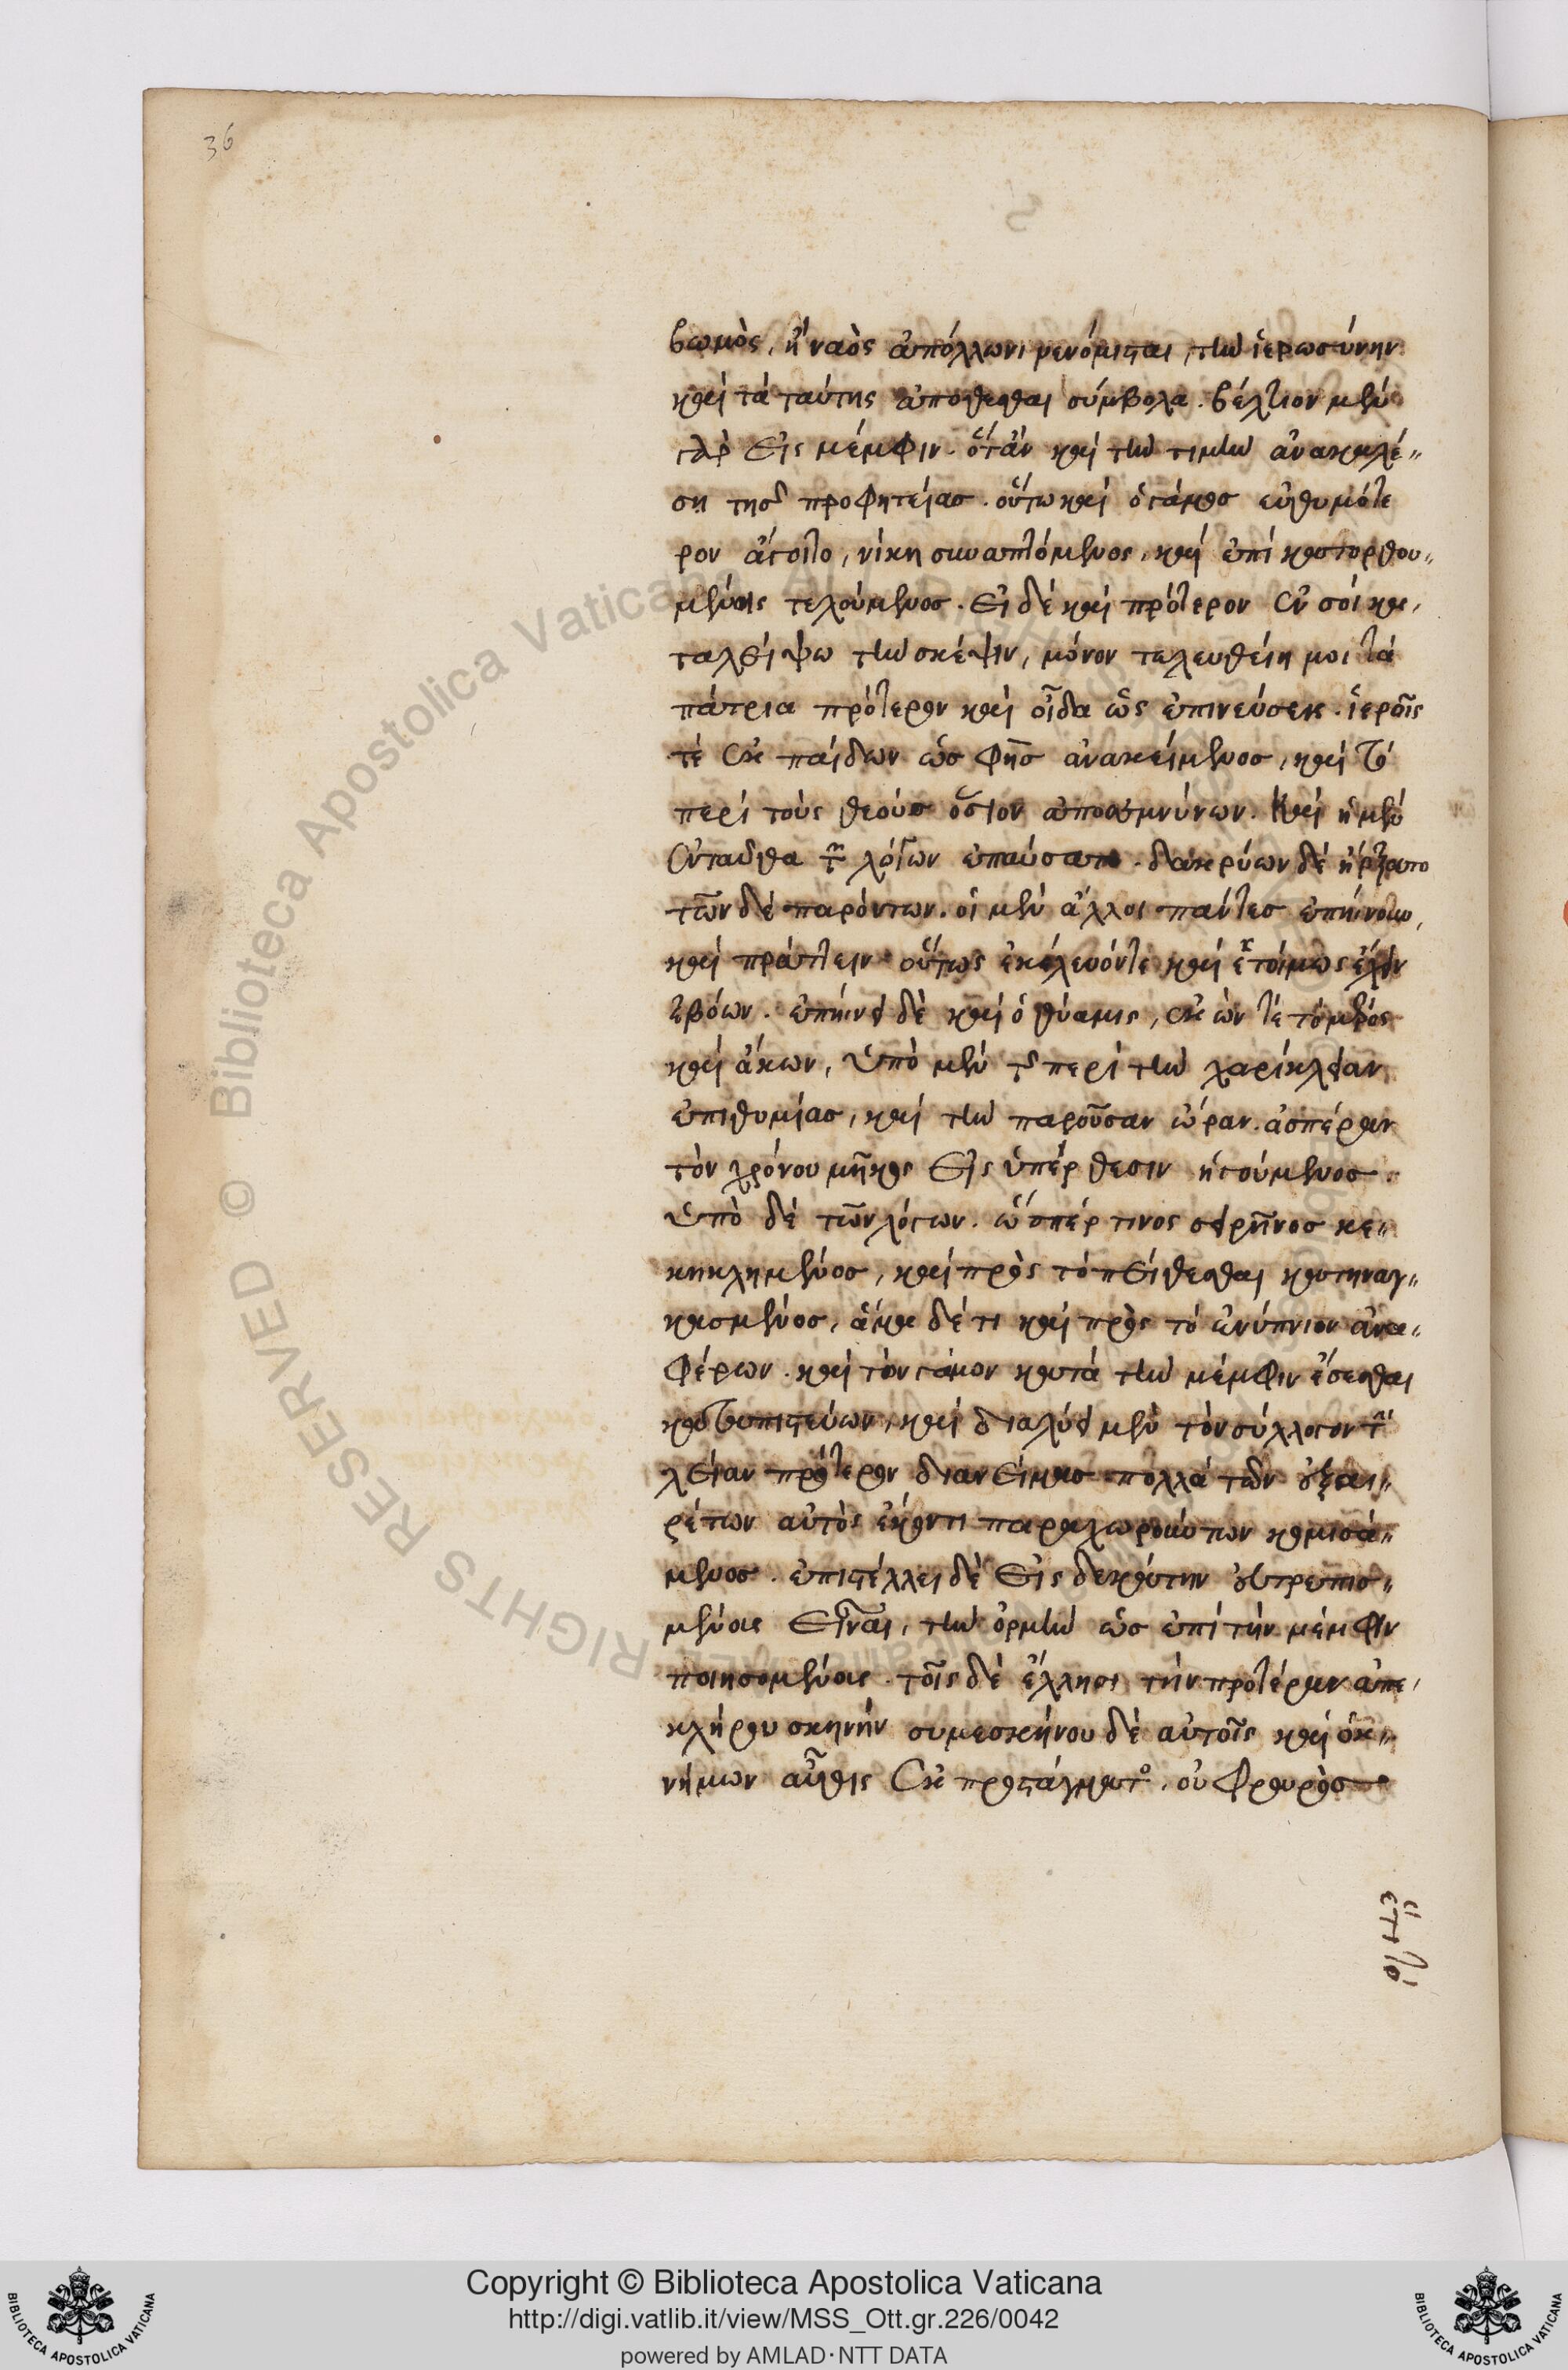 36
βωμὸς, ἢ ναὸς ἀπόλλωνι νενόμισται, τὴν ἱερωσύνην
καὶ τὰ ταύτης ἀποθέσθαι σύμβολα. βέλτιον μὲν
γὰρ εἰς μέμφιν. ὅταν καὶ τὴν τιμὴν ἀνακαλέ〃
ση τῆς προφητείας. οὕτω καὶ ὁ γάμος εὐθυμότε
ρον ἄγοιτο, νίκη συναπτόμενος, καὶ ἐπὶ κατορθου〃
μένοις τελούμενος. εἰ δὲ καὶ πρότερον ἐν σοὶ κα,
ταλείψω τὴν σκέψιν, μόνον τελευθείη μοι τὰ
πάτρια πρότερον καὶ οἶδα ὡς ἐπινεύσεις. ἱεροῖς
τὲ ἐκ παίδων ὡς φῂς ἀνακείμενος, καὶ τὸ
περὶ τοὺς θεοὺς ὅσιον ἀποσεμνύνων. καὶ ἡ μὲν
ἐνταῦθα τῶν λόγων ἐπαύσατο. δακρύων δὲ ἤρξατο
τῶν δὲ παρόντων. οἱ μὲν ἄλλοι πάντες ἐπῄνουν,
καὶ πράττειν οὕτως ἐκέλευόν τε καὶ ἑτοίμως ἔχειν
ἐβόων. ἐπῄνει δὲ καὶ ὁ θύαμις, ἑκών τε τὸ μέρος
καὶ ἄκων, ὑπὸ μὲν τῆς περὶ τὴν χαρίκλειαν
ἐπιθυμίας, καὶ τὴν παροῦσαν ὥραν. ἀσπέραν
τὸν χρόνου μῆκος εἰς ὑπέρθεσιν ἡγούμενος.
ὑπὸ δὲ τῶν λόγων. ὥσπέρ τινος σειρῆνος κε〃
κηκλημένος, καὶ πρὸς τὸ πείθεσθαι κατηναγ〃
κασμένος, ἅμα δέ τι καὶ πρὸς τὸ ἐνύπνιον ἀνα〃
φέρων. καὶ τὸν γάμον κατὰ τὴν μέμφιν ἔσεσθαι
καταπιστεύων, καὶ διαλύει μὲν τὸν σύλλογον τὴν
λείαν πρότερον διανείμας πολλὰ τῶν ἐξαι〃
ρέτων αὐτὸς ἑκόντι παραχωρούντων κομισά〃
μενος. ἐπιστέλλει δὲ εἰς δεκάτην εὐτρεπισ〃
μένοις εἶναι, τὴν ὁρμὴν ὡς ἐπὶ τὴν μέμφιν
ποιησομένοις. τοῖς δὲ ἕλλησι τὴν προτέραν ἀπε,
κλήρου σκηνὴν συμεσκήνου δὲ αὐτοῖς καὶ ὁ κ〃
νήμων αὖθις ἐκ προστάγματος. οὐ φρουρὸς
ἔτι
Copyright © Biblioteca Apostolica Vaticana
http://digi.vatlib.it/view/MSS_Ott.gr.226/0042
powered by AMLAD·NTT DATA
BIBLIOTECA APOSTOLICA VATICANA
BIBLIOTECA APOSTOLICA VATICANA
© Biblioteca Apostolica Vaticana
RIGHTS RESERVED